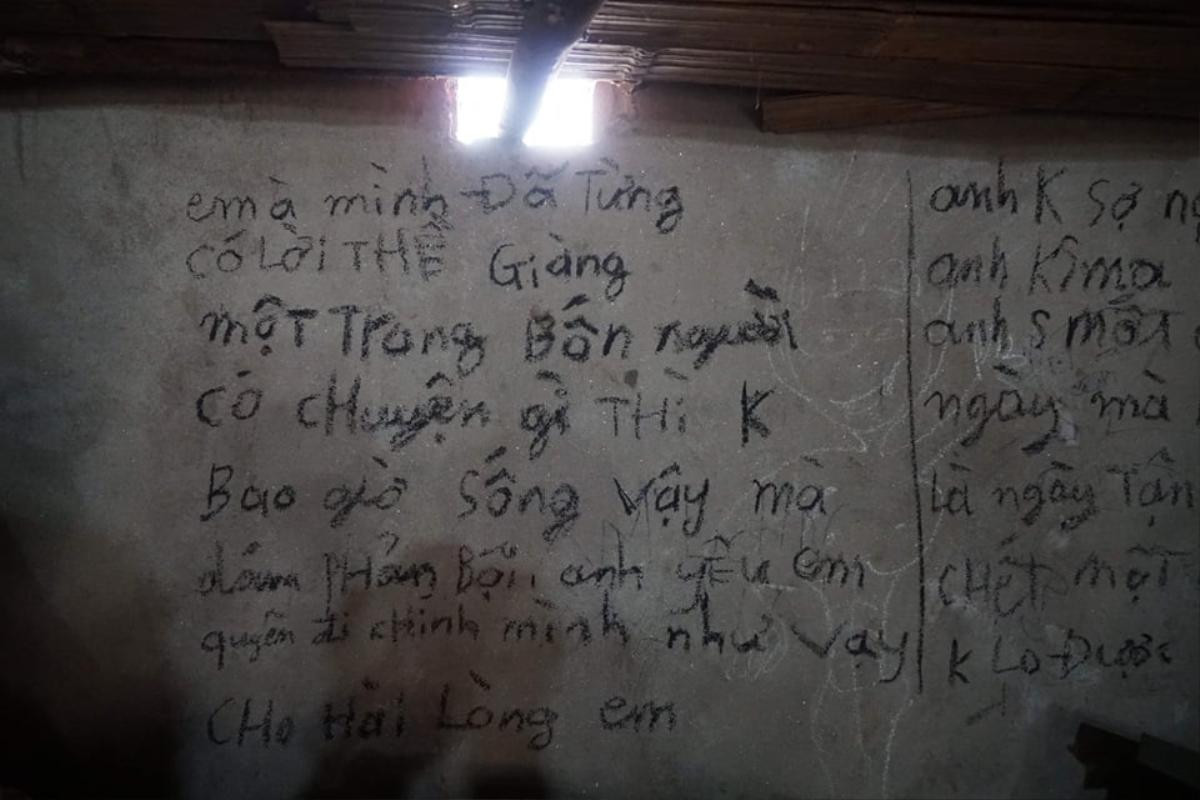 em à mình Đã Từng
có Lời THỀ Giàng
một Trong Bốn người
có cHuyện gì THì K
Bao giờ Sống vậy mà
dám PHản Bội, anh yÊu em
quyên đi cHinh mình như vậy
CHo Hài Lòng em
anh K Sợ
anh K
anh S mất
ngày mà
là ngày Tận
CHết một
K Lo Được